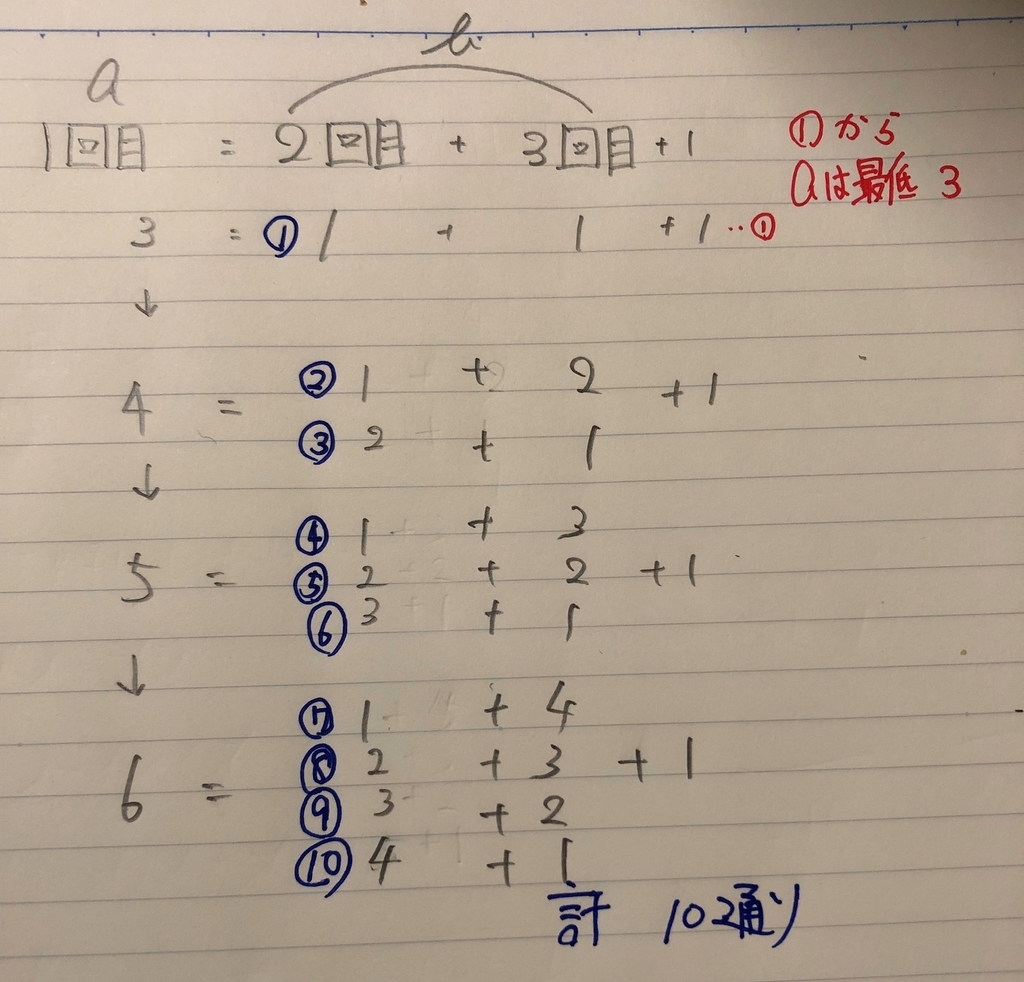 a b
1回目 = 2回目 + 3回目 + 1
①から
aは最低 3
3 = ① 1 + 1 + 1 ‥①
↓
② 1 + 2
4 = + 1
③ 2 + 1
↓
④ 1 + 3
5 = ⑤ 2 + 2 + 1
⑥ 3 + 1
↓
⑦ 1 + 4
6 = ⑧ 2 + 3 + 1
⑨ 3 + 2
⑩ 4 + 1
計 10通り